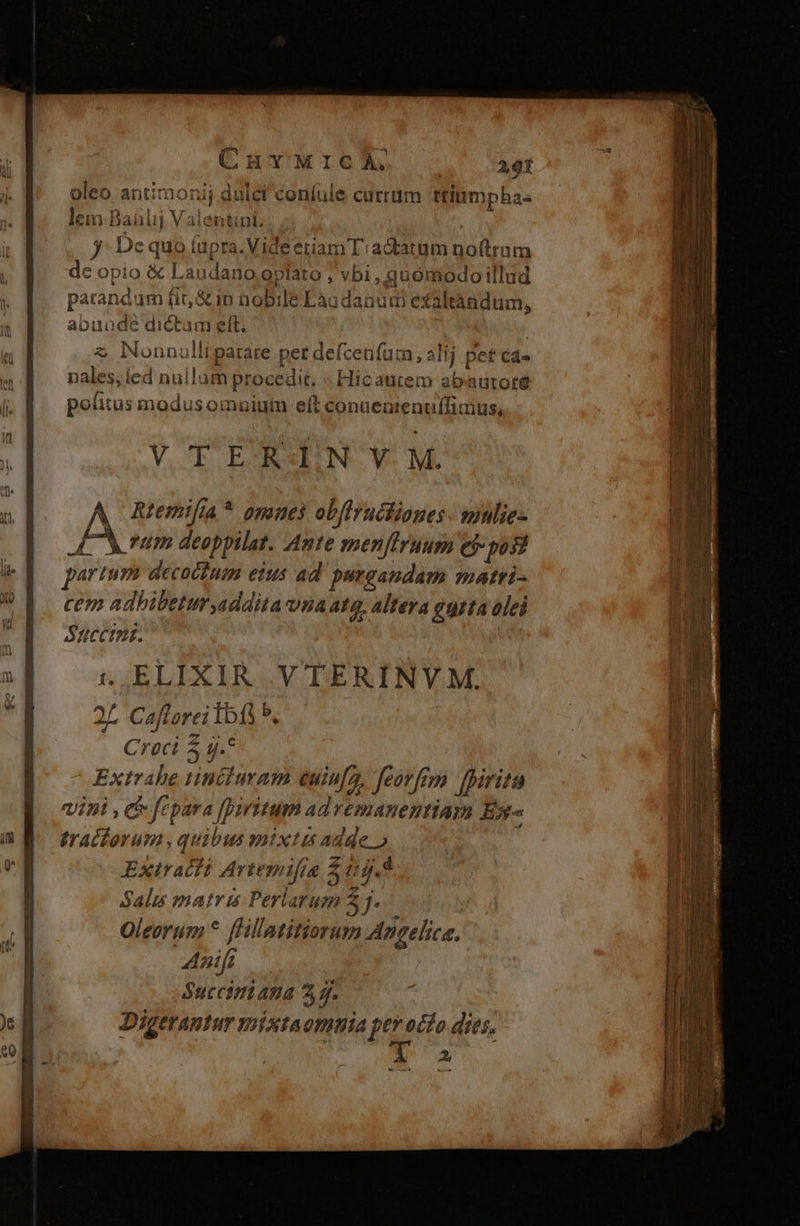 CHYMICA. 291
oleo antimonij dulci conſule currum triumpha-
lem Baſilij Valentini.
y De quo ſupra. Vide etiam Tractatum noſtrum
de opio & Laudano opiato, vbi, quomodo illud
parandum ſit, & in nobile Laudanum exaltandum,
abunde dictum eſt.
z Nonnulli parare per deſcenſum, alij per ca-
nales, ſed nullum procedit. Hic autem ab autore
poſitus modus omnium eſt conuenientiſſimus.
VTERINVM.
ARtemiſia a omnes obſtructiones mulie-
rum deoppilat. Ante menſtruum & post
partum decoctum eius ad purgandam matri-
cem adhibetur, addita vna atq, altera gutta olei
Succini.
1. ELIXIR VTERINVM.
℞ Caſtorei ℔ß b.
Croci ℥ ij. c
Extrahe tincturam cuiuſq, ſeorſim ſpiritu
vini, & ſepara ſpiritum ad remanentiam Ex-
tractorum, quibus mixtis adde
Extracti Artemiſiæ ℥ iij. d
Salis matris Perlarum ℥ j.
Oleorum e ſtillatitiorum Angelicæ.
Aniſi
Succini ana ʒ ij.
Digerantur mixta omnia per octo dies.
T 2